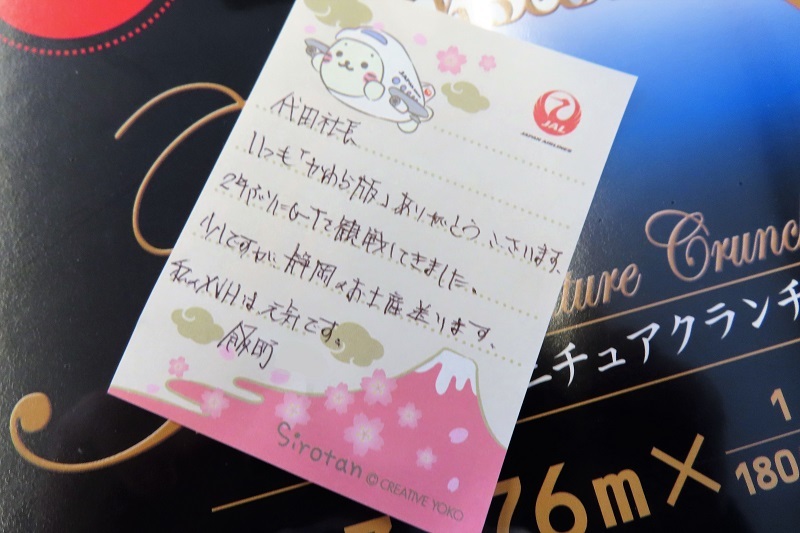 JAL
JAPAN AIRLINES
代田社長
いつも「かわら版」ありがとうございます。
2年ぶりにGTを観戦してきました。
少しですが静岡のお土産送ります。
私のXVHは元気です。
飯町
Sirotan © CREATIVE YOKO
ture Crunc
ニチュアクランチ
76m×
1
180